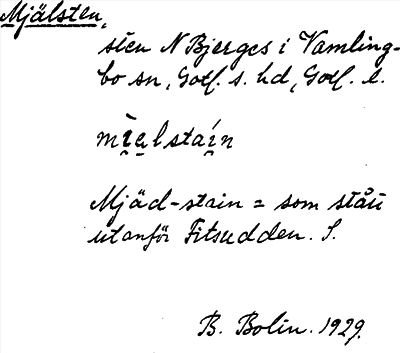 Mjälsten,
sten N Bjerges i Vamling-
bo sn, Gotl. s. hd, Gotl. l.
mìe̯lstaí̯n
Mjäd-stain = som står
utanför Fitsudden. S.
B. Bolin. 1929.